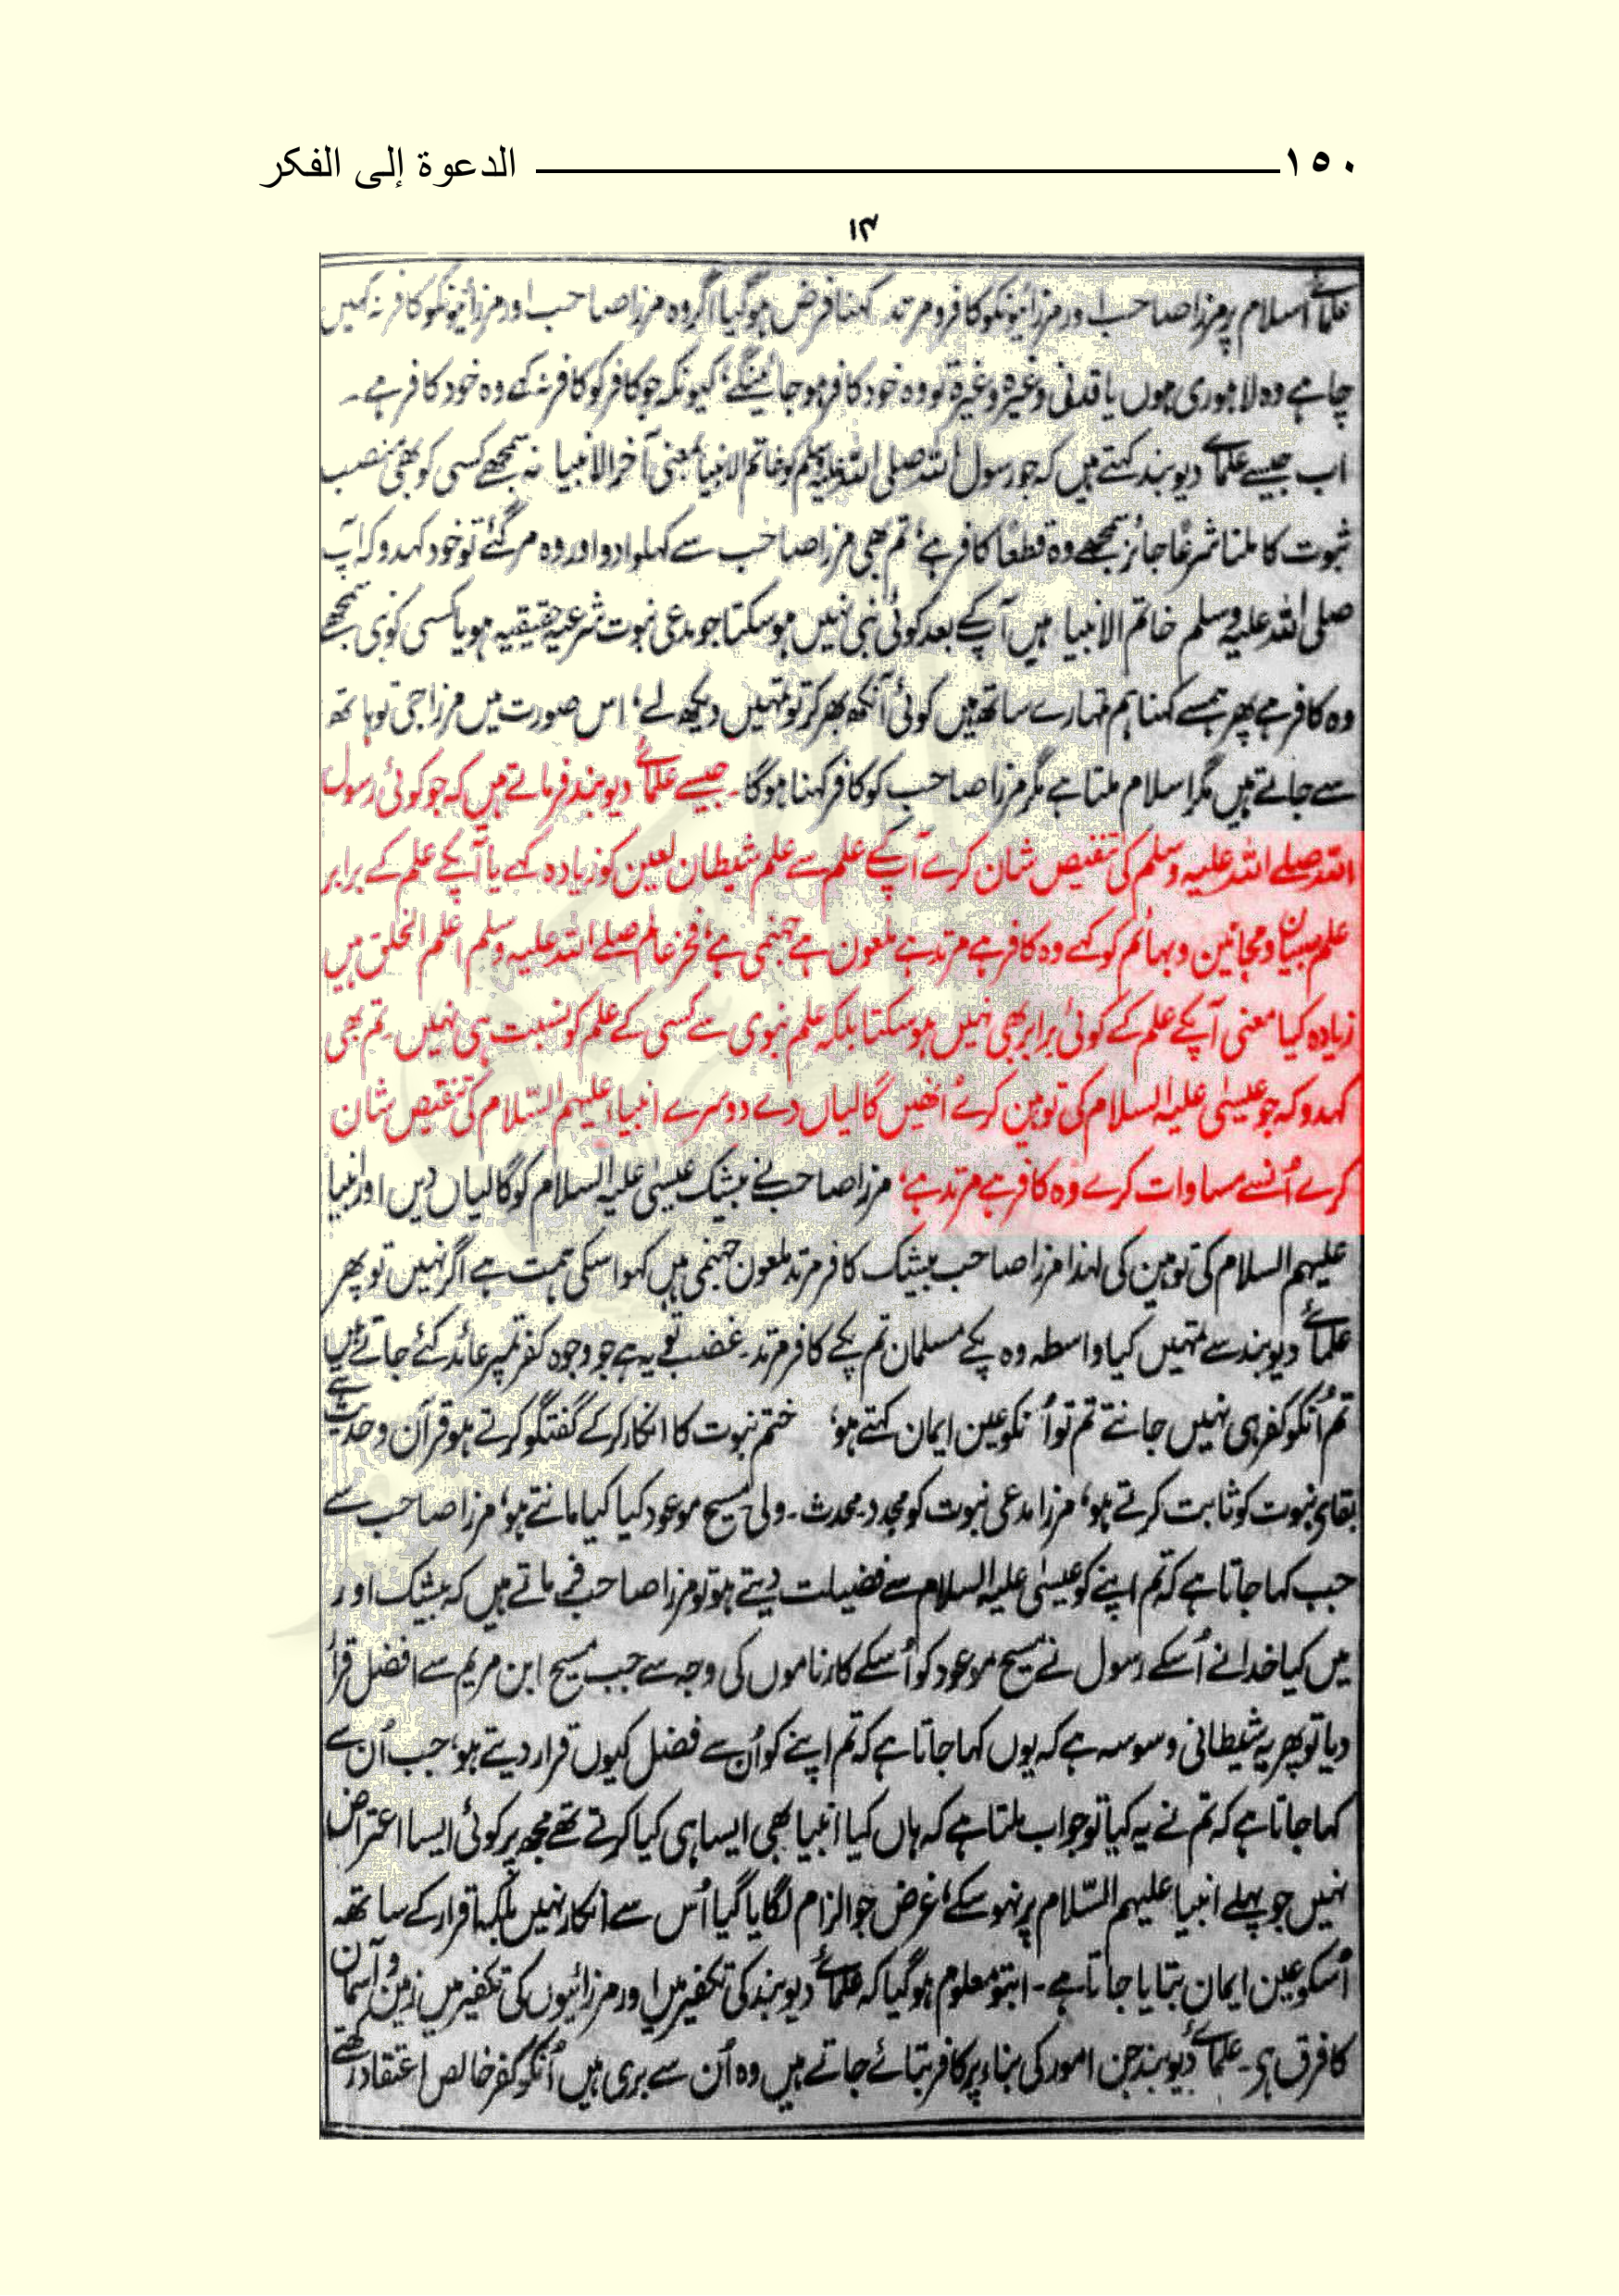 ١٥٠ الدعوة إلى الفكر
۱۴
علمائے اسلام پر مرزا صاحب اور مرزائیونکو کافر و مرتد کہنا فرض ہو گیا اگر وہ مرزا صاحب اور مرزائیونکو کافر نہ کہیں
چاہے وہ لاہوری ہوں یا قدنی وغیرہ وغیرہ تو وہ خود کافر ہو جائینگے، کیونکہ جو کافر کو کافر نہ کہے وہ خود کافر ہے۔
اب جیسے علمائے دیوبند کہتے ہیں کہ جو رسول اللہ صلی اللہ علیہ وسلم کو خاتم الانبیا بمعنی آخر الانبیا نہ سمجھے کسی کو بھی منصب
ثبوت کا ملنا شرعًا جائز سمجھے وہ قطعًا کافر ہے، تم بھی مرزا صاحب سے کہلوا دو اور وہ مر گئے تو خود کہدو کہ آپ
صلی اللہ علیہ وسلم خاتم الانبیا ہیں آپکے بعد کوئی نبی نہیں ہو سکتا جو مدعی نبوت شرعیہ حقیقیہ ہو یا کسی کو نبی سمجھے
وہ کافر ہے پھر ہمسے کہنا ہم تمہارے ساتھ ہیں کوئی آنکھ بھر کر تو تمہیں دیکھ لے، اس صورت میں مرزا جی تو ہاتھ
سے جاتے ہیں مگر اسلام ملتا ہے مگر مرزا صاحب کو کافر کہنا ہوگا۔ جیسے علمائے دیوبند فرماتے ہیں کہ جو کوئی رسول
اللہ صلے اللہ علیہ وسلم کی تنقیص شان کرے آپکے علم سے علم شیطان لعین کو زیادہ کہے یا آپکے علم کے برابر
علم صبیان و مجانین و بہائم کو کہے وہ کافر ہے مرتد ہے ملعون ہے جہنمی ہے، فخر عالم صلے اللہ علیہ وسلم اعلم الخلق ہیں
زیادہ کیا معنی آپکے علم کے کوئی برابر بھی نہیں ہو سکتا بلکہ علم نبوی سے کسی کے علم کو نسبت ہی نہیں۔ تم بھی
کہدو کہ جو عیسیٰ علیہ السلام کی توہین کرے اُنھیں گالیاں دے دوسرے انبیاء علیہم السّلام کی تنقیص شان
کرے اُنسے مساوات کرے وہ کافر ہے مرتد ہے، مرزا صاحب نے بیشک عیسیٰ علیہ السلام کو گالیاں دیں اور انبیا
علیہم السلام کی توہین کی لہذا مرزا صاحب بیشک کافر مرتد ملعون جہنمی ہیں کہو اسکی ہمت ہے اگر نہیں تو پھر
علمائے دیوبند سے تمہیں کیا واسطہ وہ پکے مسلمان تم پکے کافر مرتد۔ غضب تو یہ ہے جو وجوہ کفر تمپر عائد کئے جاتے ہیں
تم اُنکو کفر ہی نہیں جانتے تم تو اُنکو عین ایمان کہتے ہو، ختم نبوت کا انکار کرکے گفتگو کرتے ہو قرآن و حدیث سے
بقائے نبوت کو ثابت کرتے ہو، مرزا مدعی نبوت کو مجدد۔ محدث۔ ولی مسیح موعود کیا کیا مانتے ہو، مرزا صاحب سے
جب کہا جاتا ہے کہ تم اپنے کو عیسیٰ علیہ السلام سے فضیلت دیتے ہو تو مرزا صاحب فرماتے ہیں کہ بیشک اور
میں کیا خدا نے اُسکے رسول نے مسیح موعود کو اُسکے کارناموں کی وجہ سے جب مسیح ابن مریم سے افضل قرار
دیا تو پھر یہ شیطانی وسوسہ ہے کہ یوں کہا جاتا ہے کہ تم اپنے کو اُن سے افضل کیوں قرار دیتے ہو، جب اُن سے
کہا جاتا ہے کہ تم نے یہ کیا تو جواب ملتا ہے کہ ہاں کیا انبیا بھی ایسا ہی کیا کرتے تھے مجھ پر کوئی ایسا اعتراض
نہیں جو پہلے انبیا علیہم السّلام پر نہو سکے، غرض جو الزام لگایا گیا اُس سے انکار نہیں بلکہ اقرار کے ساتھ
اُسکو عین ایمان بتایا جاتا ہے۔ ابتو معلوم ہو گیا کہ علمائے دیوبند کی تکفیر میں اور مرزائیوں کی تکفیر میں زمین و آسمان
کا فرق ہی۔ علمائے دیوبند جن امور کی بناء پر کافر بتائے جاتے ہیں وہ اُن سے بری ہیں اُنکو کفر خالص اعتقاد رکھتے